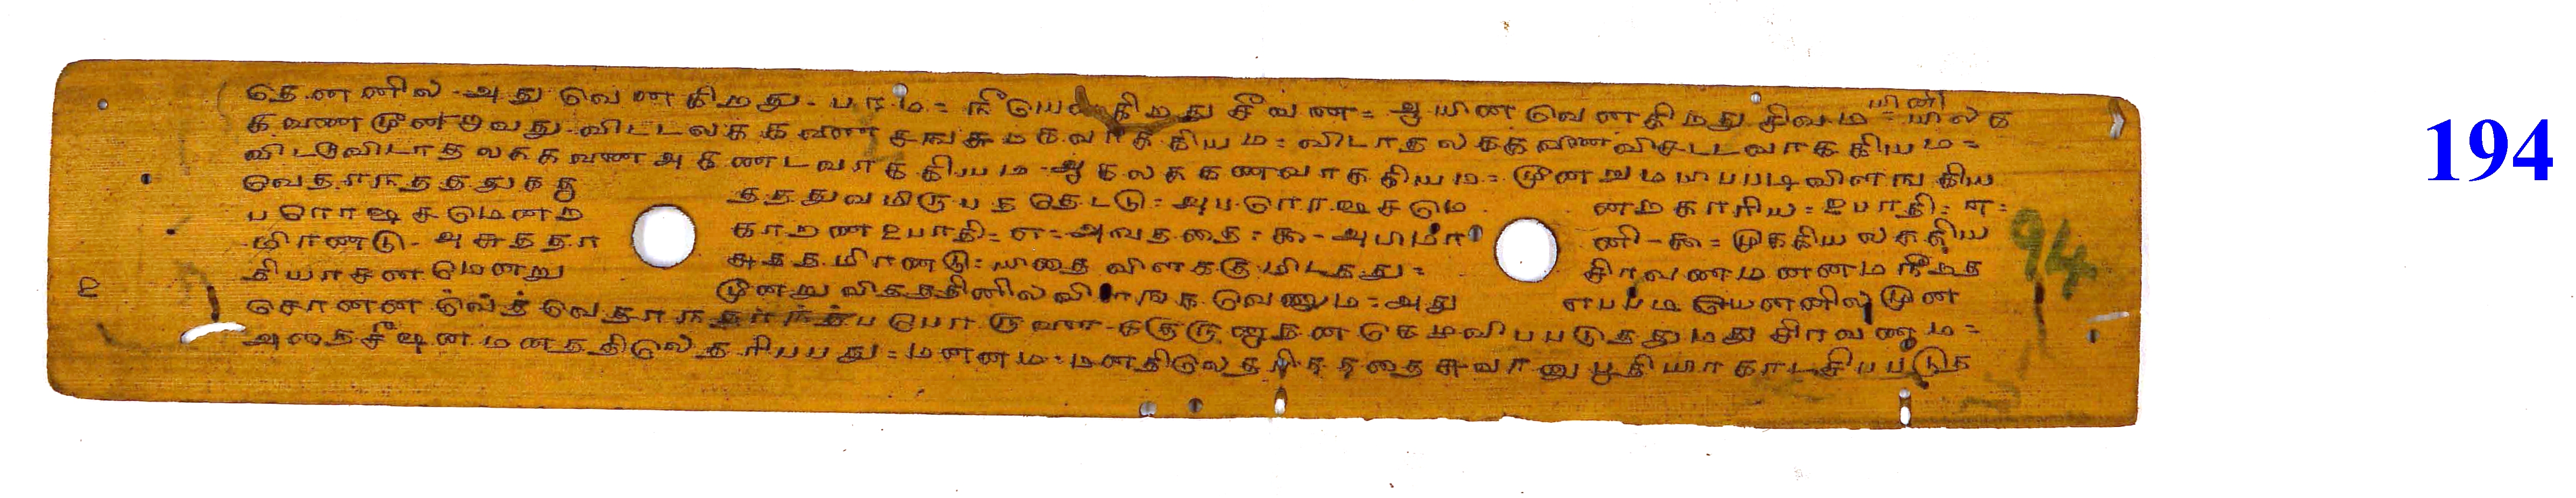 தெனனில - அது வெனகிறது - பரம = நீயெ கிறது சீவன = ஆயின வெனகிறது சிவம = யிலக
யினி
கவண மூனறாவது விடடலககவண சஙகமகவாககியம = விடாதலககவண விசடடவாககியம =
விடடுவிடாதலககவண அகணடவாககியம - ஆகலககணவாககியம = மூனறுமயிபபடி விளஙகிய
வெதாநதததுகது தததுவமிருபததெடடு = அபரொஷசமெ னறகாரிய = உபாதி = எ =
பரொஷசமெனற காறண உபாதி = எ = அவததை = ௬ - அபிமா னி - ௬ = முககிய லககிய
மிரணடு - அசுததா சுததமிரணடு = யிதை விளககுமிடதது = சிரவணமனனம நீறத
தியாசனமெனறு மூனறு விதததினில விளஙக வெணும = அது எபபடியெனனில மூன
௨
சொனன வெதாநத பொருளை - ககுருனுதன கெழவிபபடுததுமது சிரவணம =
அதைசீஷன மனததிலெதரிபபது = மனனம = மனதிலெதரிதததை சுவானுபூதியாகாடசிபபடுத
94
194